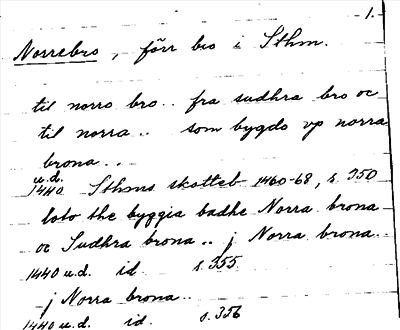 1.
Norrebro, förr bro i Sthm.
til norro bro.. fra sudhra bro oc
til norra.. som bygdo vp norra
brona..
u.d.
1440 Sthms skotteb 1460-68, s. 350
loto the byggia badhe Norra brona
oc Sudhra brona.. j Norra brona..
1440 u.d. id s. 355
j Norra brona..
1440 u.d. id. s. 356